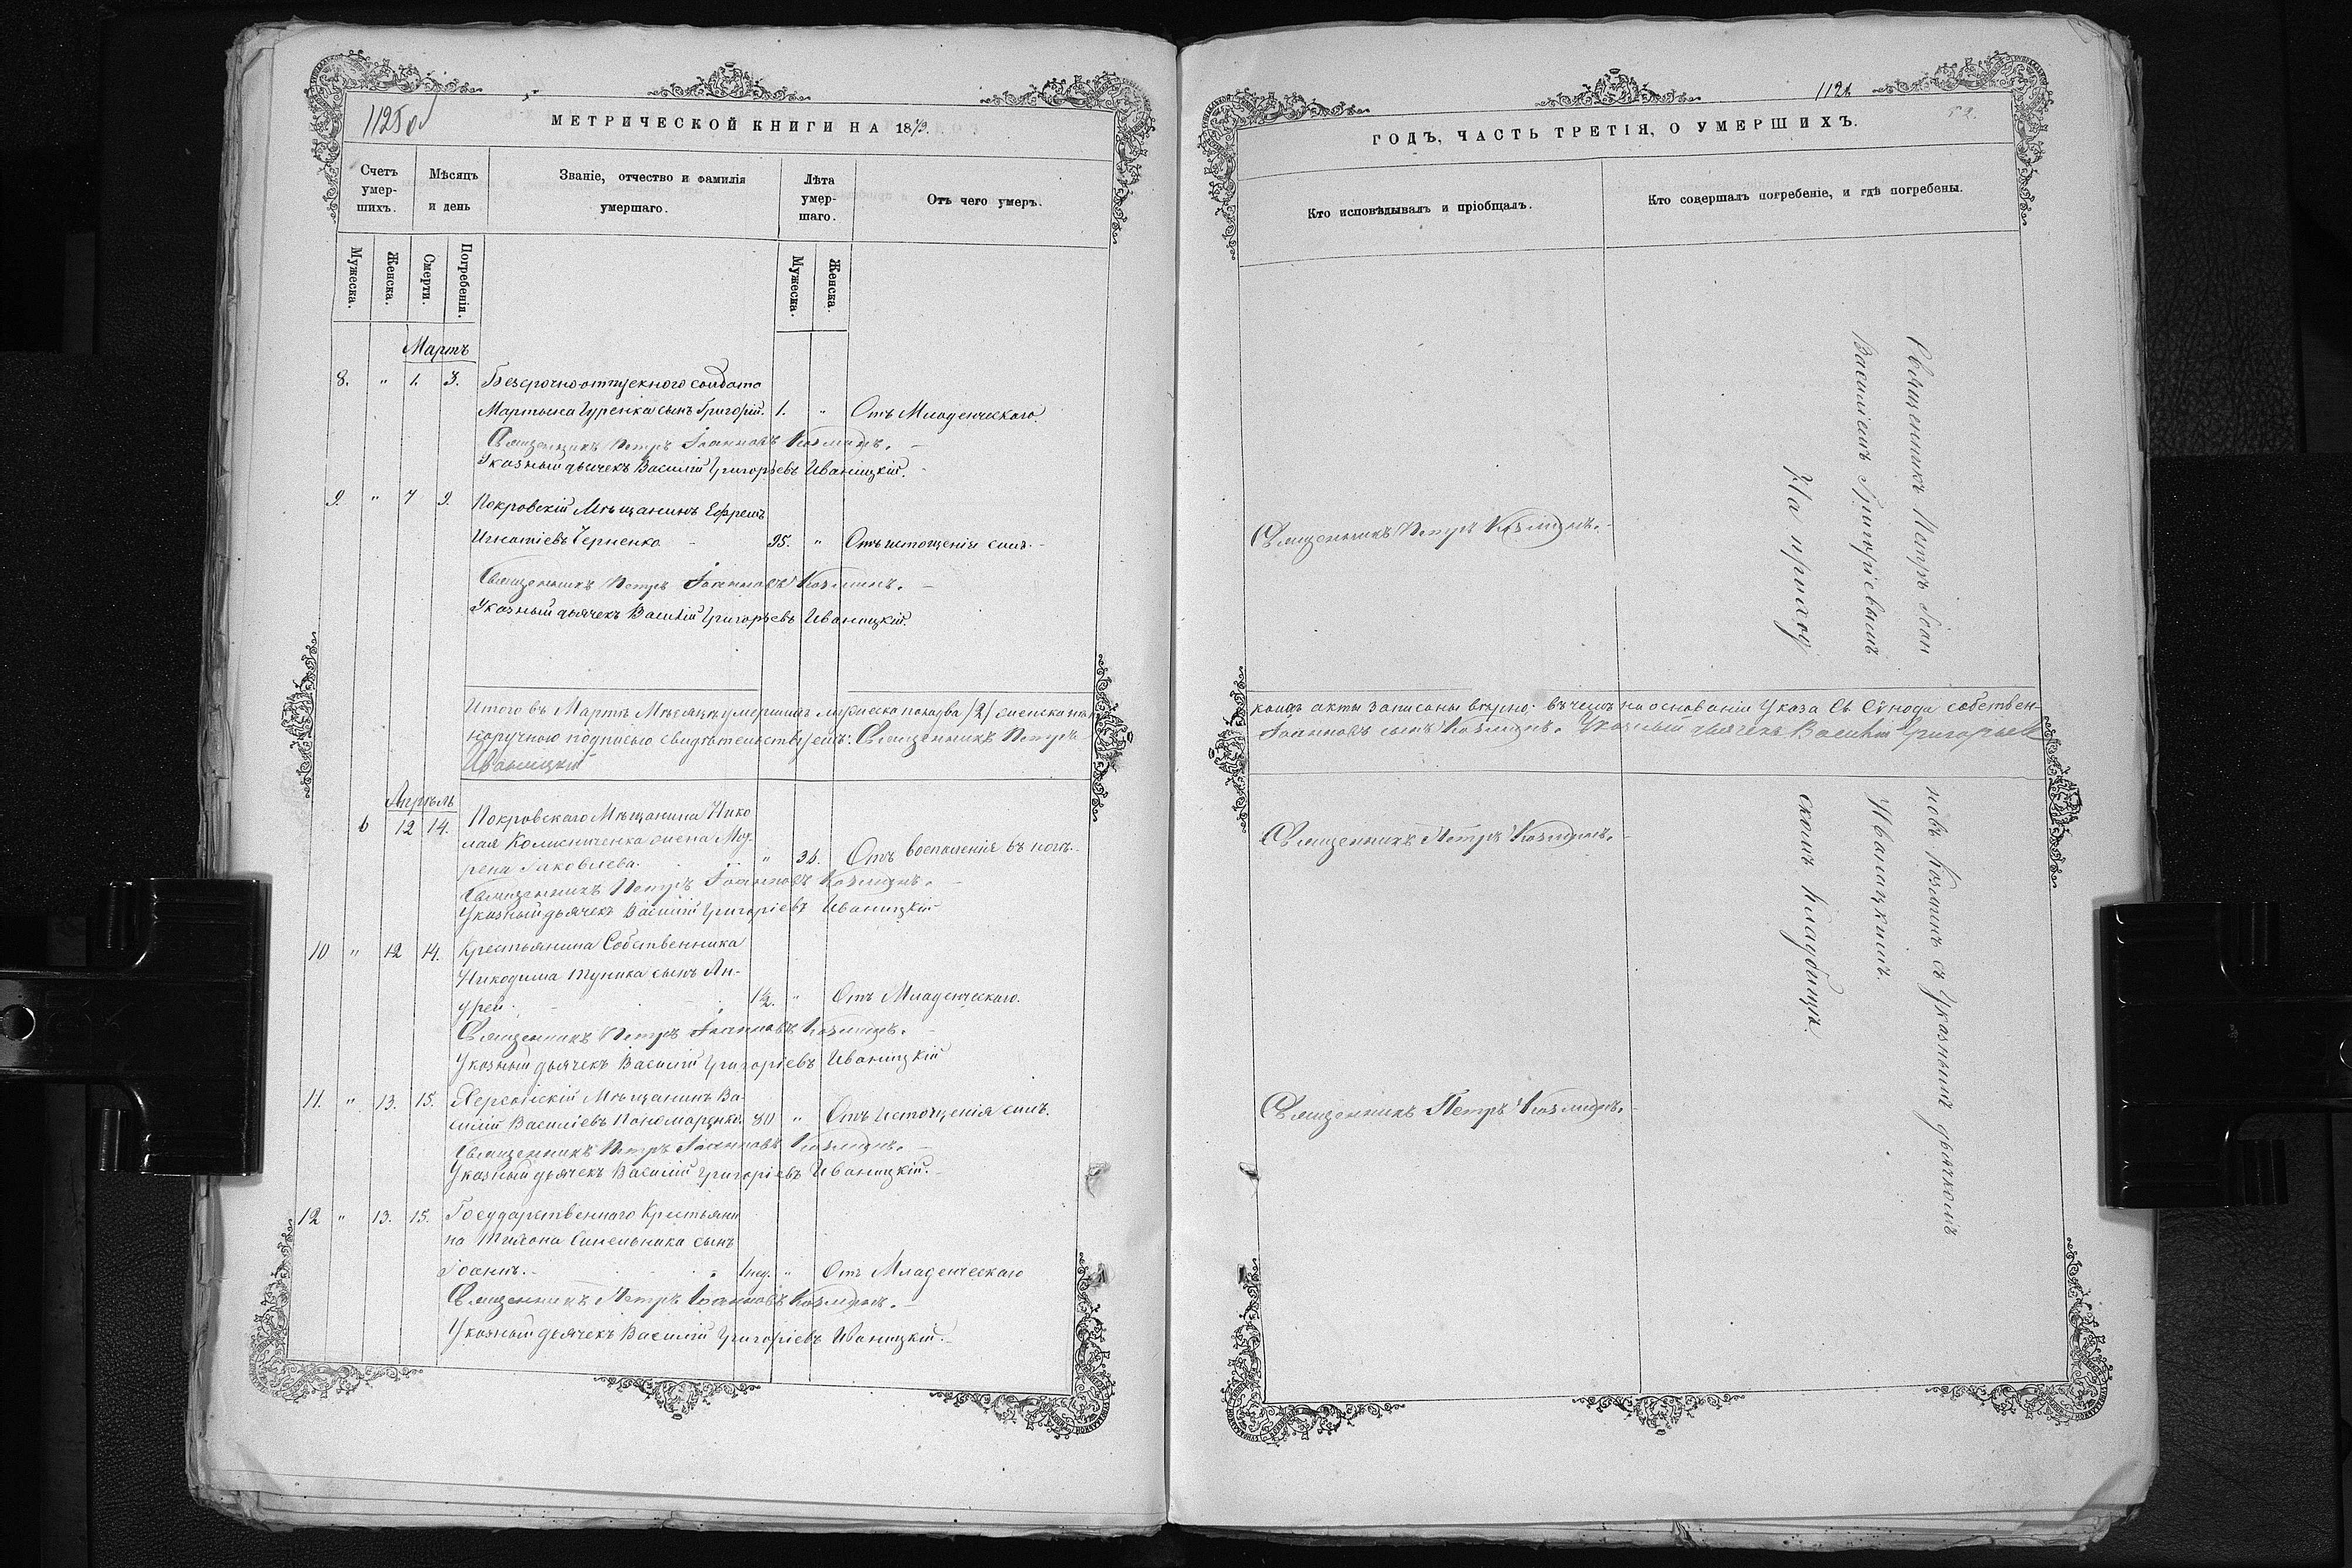 1125 об
МЕТРИЧЕСКОЙ КНИГИ НА 1879.
Счетъ умер-шихъ.
Мѣсяцъ и день
Званіе, отчество и фамилія умершаго.
Лѣта умер-шаго.
Отъ чего умеръ.
Мужеска.
Женска.
Смерти.
Погребенія.
Мужеска.
Женска.
Мартъ
8. " 1. 3. Безсрочноотпускного солдата
Мартына Гуренка сынъ Григорій. 1. " Отъ Младенческаго.
Священникъ Петръ Іоанновъ Козминъ.
Указный дьячекъ Василій Григорьевъ Иваницкій.
9. " 7 9. Покровскій Мѣщанинъ Ефремъ
Игнатіевъ Черненко 95. " Отъ истощенія силъ.
Священникъ Петръ Іоанновъ Козминъ.
Указный дьячекъ Василій Григорьевъ Иваницкій.
Итого въ Мартѣ Мѣсяцѣ умершихъ мужеска пола два /2/ женска
наручною подписью свидѣтельствуемъ: Священникъ Петръ
Иваницкій
Апрѣль
6 12 14. Покровскаго Мѣщанина Нико
лая Колисниченка жена Мот
рена Іаковлева. " 36. Отъ воспаленія въ ногѣ.
Священникъ Петръ Іоанновъ Козминъ.
Указный дьячекъ Василій Григоріевъ Иваницкій
10 " 12 14. Крестьянина Собственника
Никодима Тупика сынъ Ан-
дрей. 1½. " Отъ Младенческаго.
Священникъ Петръ Іоанновъ Козминъ.
Указный дьячекъ Василій Григоріевъ Иваницкій
11. " 13. 15. Херсонскій Мѣщанинъ Ва-
силій Василіевъ Пономаренко. 80 " Отъ истощенія силъ.
Священникъ Петръ Іоанновъ Козминъ.
Указный дьячекъ Василій Григоріевъ Иваницкій.
12 " 13. 15. Государственнаго Крестьяни
на Тихона Синельника сынъ
Іоаннъ. 1 нед. " Отъ Младенческаго
Священникъ Петръ Іоанновъ Козминъ.
Указный дьячекъ Василій Григоріевъ Иваницкій.
1126
52.
ГОДЪ, ЧАСТЬ ТРЕТІЯ, О УМЕРШИХЪ.
Кто исповѣдывалъ и пріобщалъ.
Кто совершалъ погребеніе, и гдѣ погребены.
Священникъ Петръ Козминъ.
каковъ акты записаны вѣрно: въ чемъ на основаніи Указа Св Сѵнода собствен-
Іоанновъ сынъ Козминъ. Указный дьячекъ Василій Григорьевъ
Священникъ Петръ Козминъ.
Священникъ Петръ Козминъ.
Священникъ Петръ Іоан
новъ Козминъ съ Указнымъ дьячкомъ
Василіемъ Григоріевымъ
Иваницкимъ.
На приход
скомъ кладбищѣ.